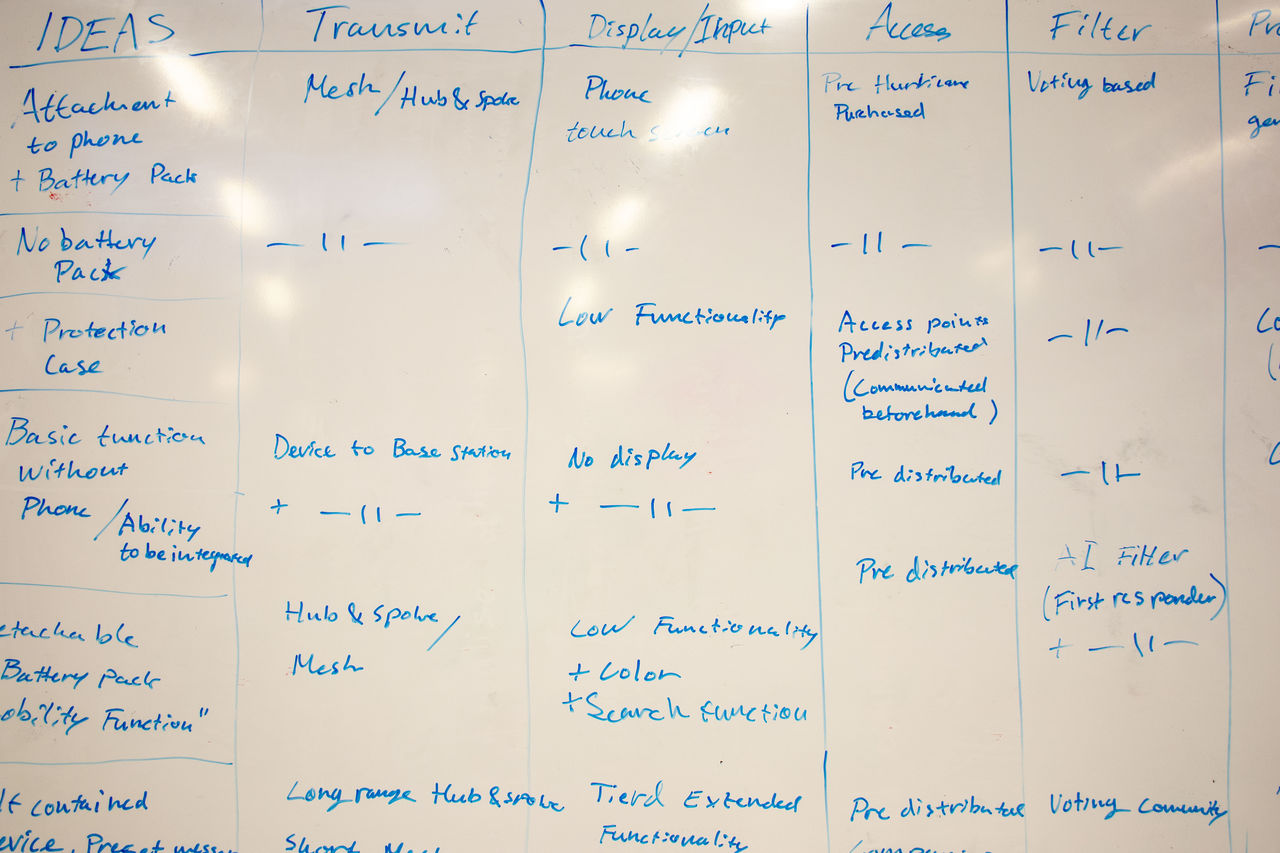 IDEAS Transmit Display/Input Access Filter
Attachment Mesh/Hub & Spoke Phone Pre Hurricane Voting based
to phone touch screen Purchased
+ Battery Pack
No battery — 11 — — 11 — — 11 — — 11 —
Pack
+ Protection Low Functionality Access points — 11 —
Case Predistributed
(Communicated
beforehand)
Basic function Device to Base Station No display Pre distributed — 11 —
without
Phone /Ability + — 11 — + — 11 —
to be integrated
Pre distributed AI Filter
(First responder)
+ — 11 —
etachable Hub & Spoke/ Low Functionality
Battery Pack Mesh + Color
obility Function" + Search function
lf contained Long range Hub & spoke Tierd Extended Pre distributed Voting Comunity
evice, Preset Short Mesh Functionality